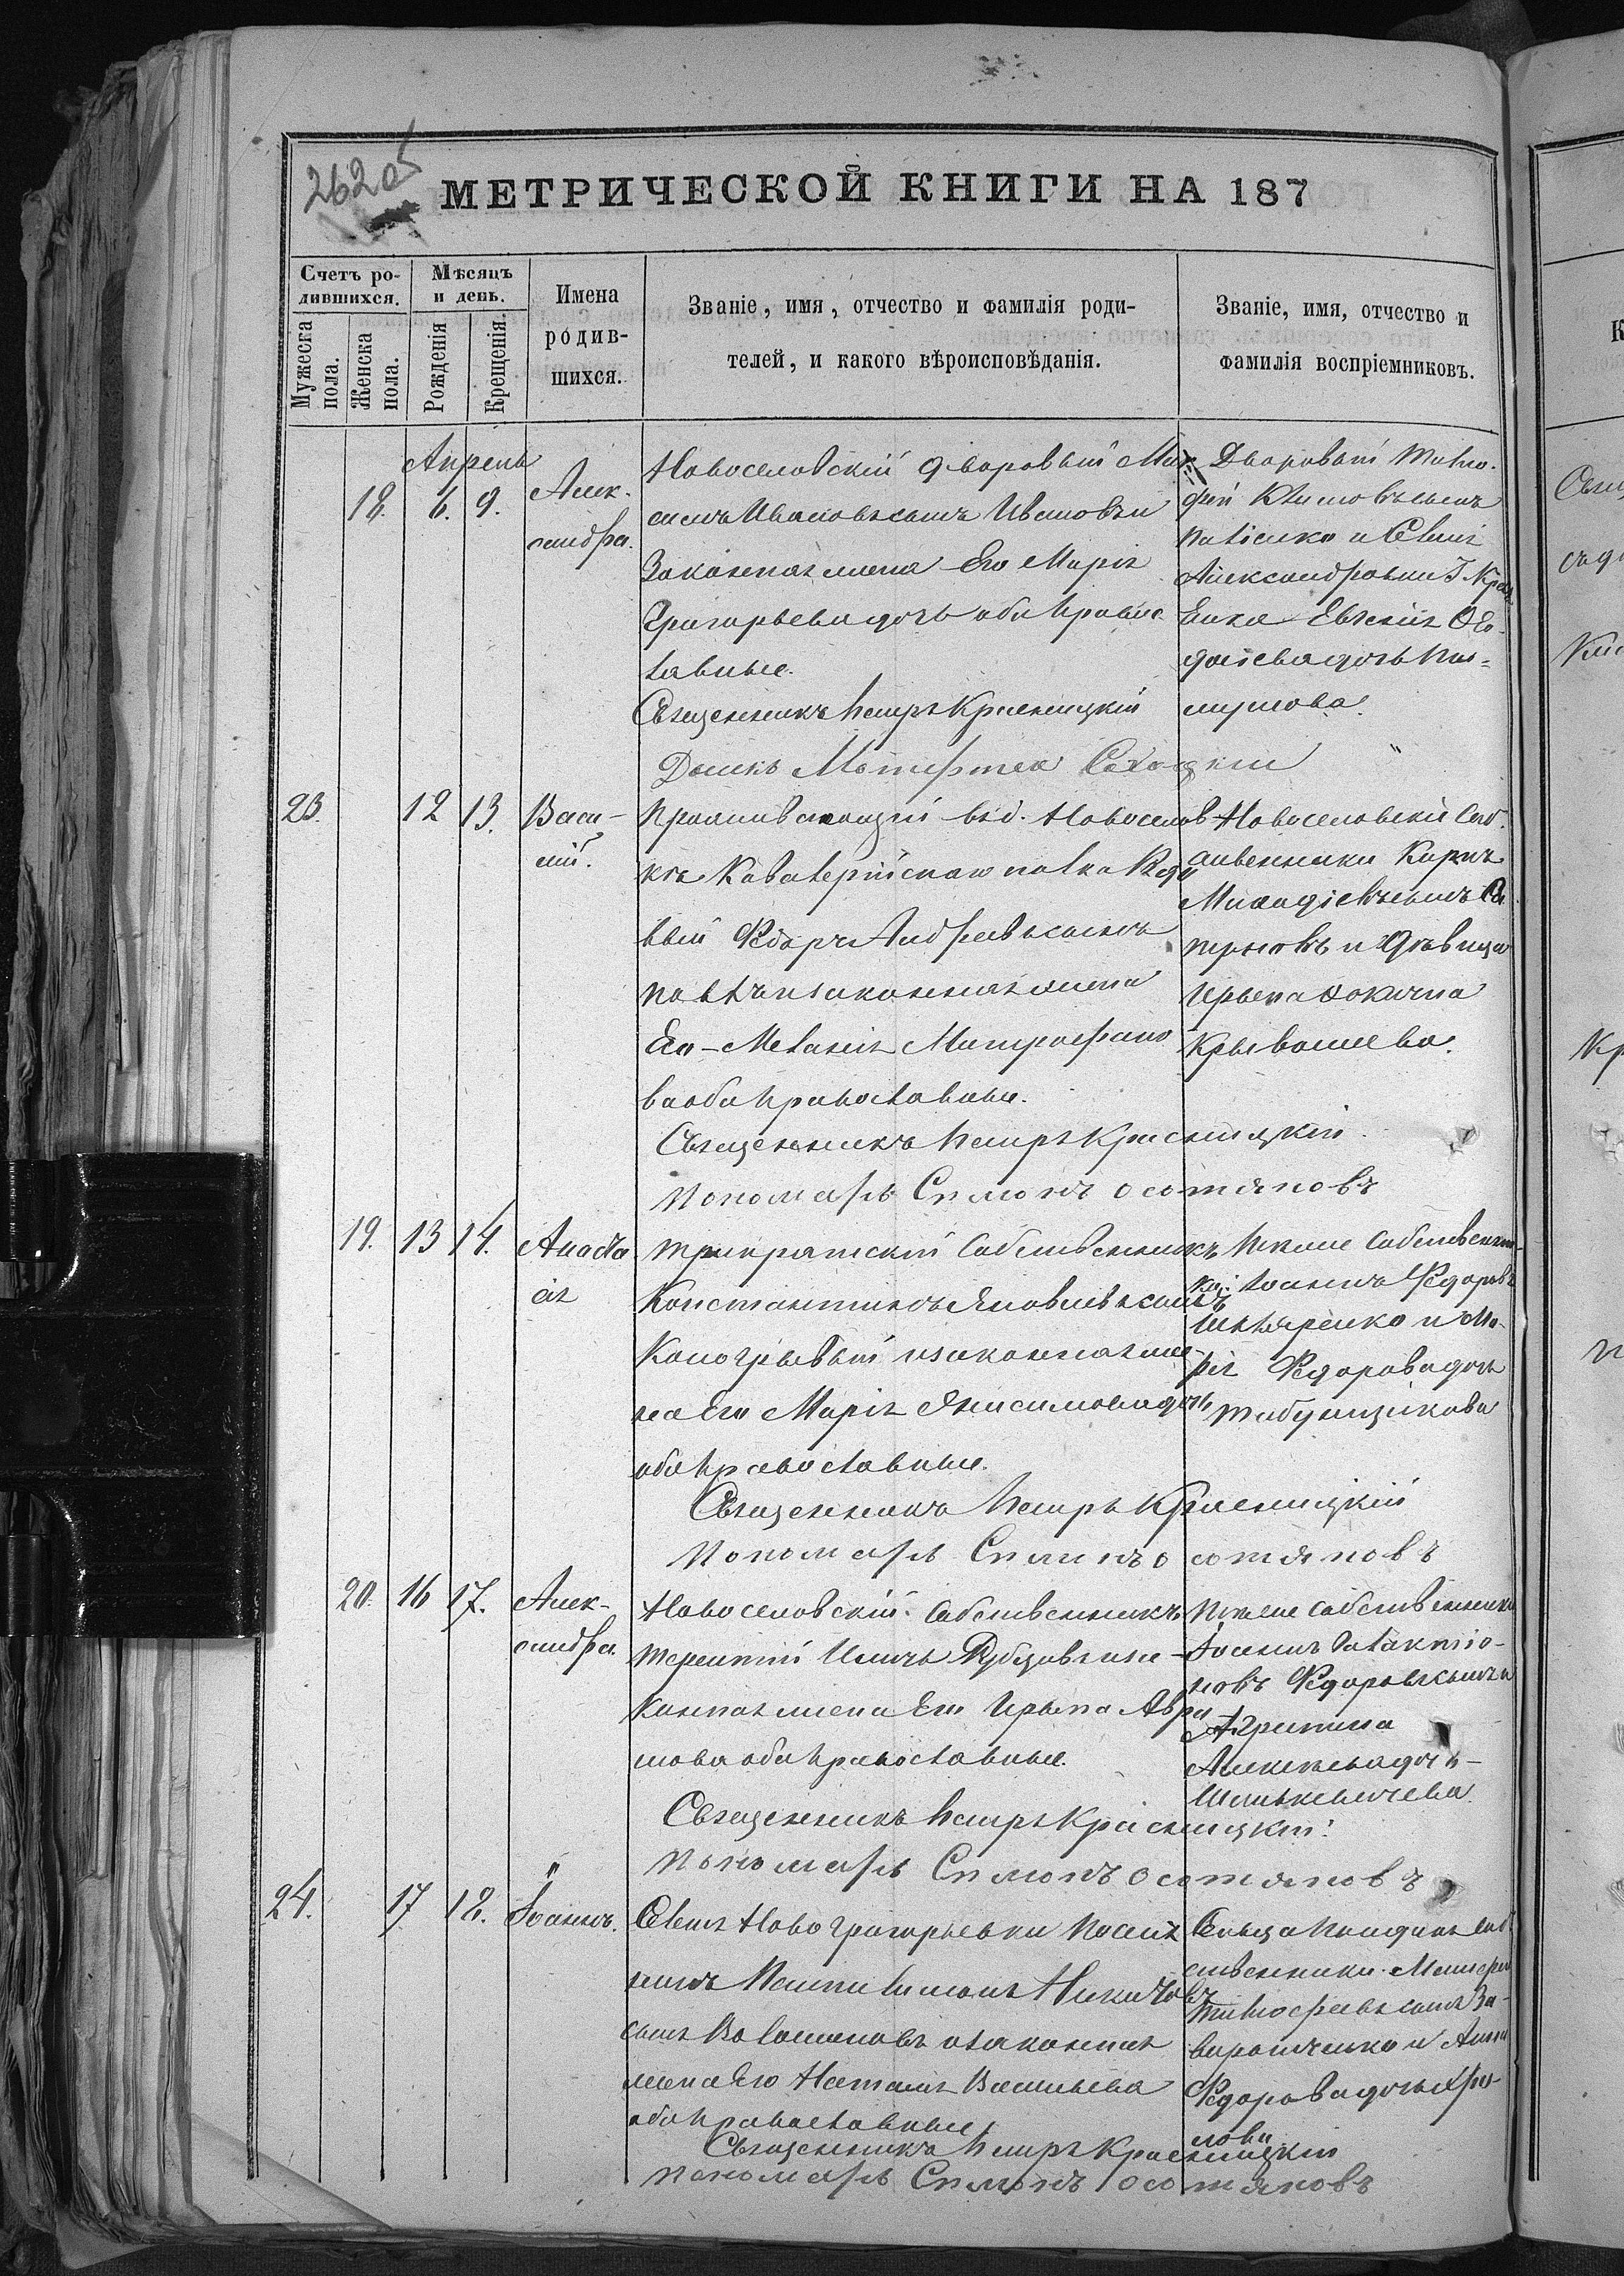 262об
МЕТРИЧЕСКОЙ КНИГИ НА 187
Счетъ ро-
дившихся.
Мужеска
пола.
Женска
пола.
Мѣсяцъ
и день.
Рожденія
Крещенія.
Имена
родив-
шихся.
Званіе, имя, отчество и фамилія роди-
телей, и какого вѣроисповѣданія.
Званіе, имя, отчество и
фамилія воспріемниковъ.
Апрель
18. 6. 9.
Алек-
сандра.
Новоселовскій дворовый
Ивановъ сынъ Ивановъ и
Законная жена Его Марія
Григорьева дочь оба право
славные.
Священникъ Петръ Красницкій
Дворовый Тимо-
фей Климовъ сынъ
и Села
Александровки
Евгенія Ѳео-
дочь
Дьякъ
23. 12 13.
Васи-
лій.
Проживающій въ д. Новоселов
кѣ Кавалерійскаго полка Рядо
вый Ѳедоръ Андреевъ сынъ
и законная жена
Его Меланія Митрофано
ва оба православные.
Священникъ Петръ Красницкій.
Пономарь Симонъ Осотяновъ
Новоселовскій Соб.
ственники Карпъ
сынъ
и Дѣвица
Ирына Фокина
Крывошеева.
19. 13 14.
Анаста
сія
Трикратскій Собственникъ
Константинъ Яковлевъ сынъ
Коногрывый и законная же-
на Его Марія Анисимова дочь
оба православные.
Священникъ Петръ Красницкій
Пономарь Симонъ Осотяновъ
Тѣже Собственни-
ки: Іоаннъ Ѳедоровъ
Шкляренко и Ма-
рія Ѳедорова дочь
Табунщикова
20. 16 17.
Алек-
сандра.
Новоселовскій Собственникъ
Терентій Ильичъ Рубцовъ и за-
конная жена Его Ирына Авра
мова оба православные.
Священникъ Петръ Красницкій.
Пономарь Симонъ Осотяновъ
Тѣже Собственники
Іоаннъ Галактіо-
новъ Ѳедоровъ сынъ и
Агрипина
Алексѣева дочь
24. 17 18.
Іоаннъ.
Села Новогригорьевки Поселя
нинъ Никитовъ
сынъ Волошиновъ и законная
жена Его Наталія Васильева
оба православные
Священникъ Петръ Красницкій
Пономарь Симонъ Осотяновъ
Сельца Соб-
ственники
Тимофеевъ сынъ За-
и Анна
Ѳедорова дочь Фро-
лова